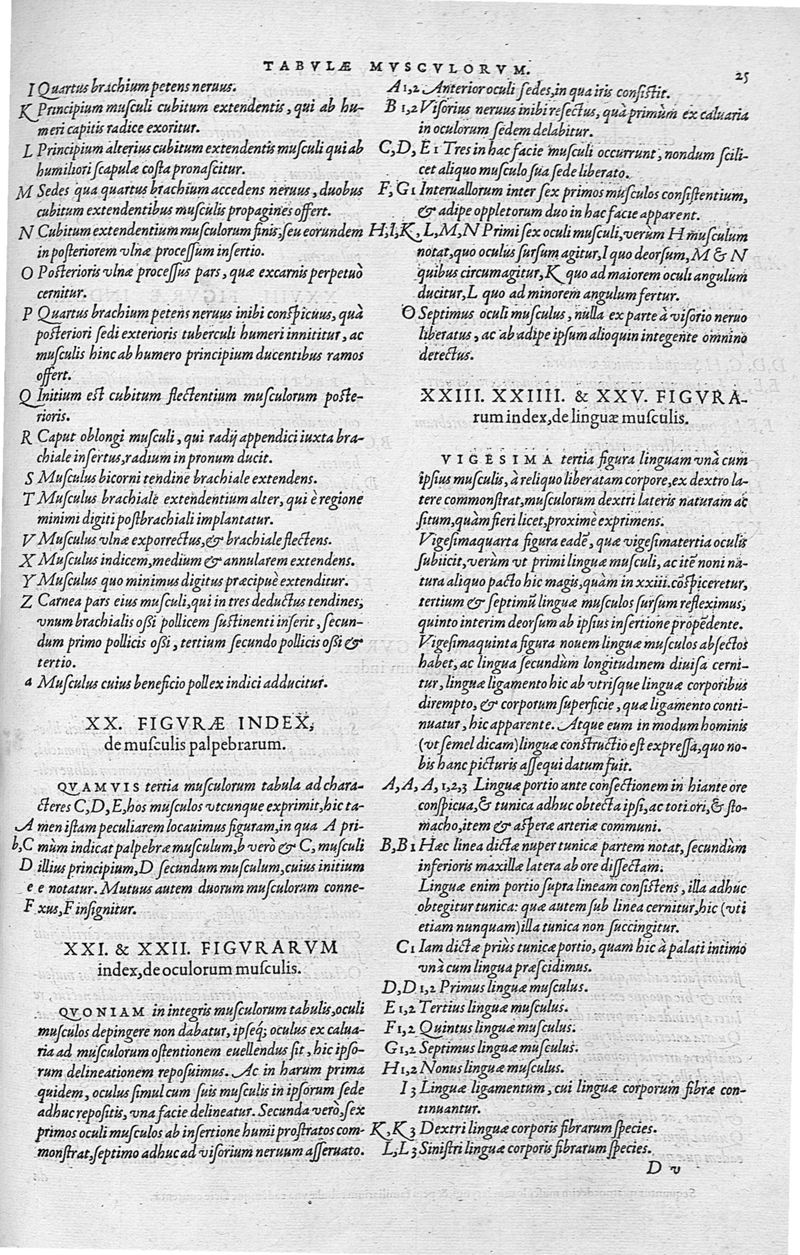 TABVLÆ MVSCVLORVM.
25
I Quartus brachium petens neruus.
K Principium musculi cubitum extendentis, qui ab hu-
meri capitis radice exoritur.
L Principium alterius cubitum extendentis musculi qui ab
humiliori scapulæ costa pronascitur.
M Sedes qua quartus brachium accedens neruus, duobus
cubitum extendentibus musculis propagines offert.
N Cubitum extendentium musculorum finis, seu eorundem
in posteriorem vlnæ processum insertio.
O Posterioris vlnæ processus pars, quæ excarnis perpetuò
cernitur.
P Quartus brachium petens neruus inibi conspicuus, quà
posteriori sedi exterioris tuberculi humeri innititur, ac
musculis hinc ab humero principium ducentibus ramos
offert.
Q Initium est cubitum flectentium musculorum poste-
rioris.
R Caput oblongi musculi, qui radij appendici iuxta bra-
chiale insertus, radium in pronum ducit.
S Musculus bicorni tendine brachiale extendens.
T Musculus brachiale extendentium alter, qui è regione
minimi digiti postbrachiali implantatur.
V Musculus vlnæ exporrectus, & brachiale flectens.
X Musculus indicem, medium & annularem extendens.
Y Musculus quo minimus digitus præcipuè extenditur.
Z Carnea pars eius musculi, qui in tres deductus tendines,
vnum brachialis ossi pollicem sustinenti inserit, secun-
dum primo pollicis ossi, tertium secundo pollicis ossi &
tertio.
a Musculus cuius beneficio pollex indici adducitur.
XX. FIGVRÆ INDEX,
de musculis palpebrarum.
QVAMVIS tertia musculorum tabula ad chara-
cteres C, D, E, hos musculos vtcunque exprimit, hic ta-
A men istam peculiarem locauimus figuram, in qua A pri-
b, C mum indicat palpebræ musculum, b verò & C, musculi
D illius principium, D secundum musculum, cuius initium
e e notatur. Mutuus autem duorum musculorum conne-
F xus, F insignitur.
XXI. & XXII. FIGVRARVM
index, de oculorum musculis.
QVONIAM in integris musculorum tabulis, oculi
musculos depingere non dabatur, ipseq; oculus ex calua-
ria ad musculorum ostentionem euellendus sit, hic ipso-
rum delineationem reposuimus. Ac in harum prima
quidem, oculus simul cum suis musculis in ipsorum sede
adhuc repositis, vna facie delineatur. Secunda verò, sex
primos oculi musculos ab insertione humi prostratos com-
monstrat, septimo adhuc ad visorium neruum asseruato.
A 1,2 Anterior oculi sedes, in qua iris consistit.
B 1,2 Visorius neruus inibi resectus, quà primùm ex caluaria
in oculorum sedem delabitur.
C, D, E 1 Tres in hac facie musculi occurrunt, nondum scili-
cet aliquo musculo sua sede liberato.
F, G 1 Interuallorum inter sex primos musculos consistentium,
& adipe oppletorum duo in hac facie apparent.
H, I, K, L, M, N Primi sex oculi musculi, verùm H musculum
notat, quo oculus sursum agitur, I quo deorsum, M & N
quibus circumagitur, K quo ad maiorem oculi angulum
ducitur, L quo ad minorem angulum fertur.
O Septimus oculi musculus, nulla ex parte à visorio neruo
liberatus, ac ab adipe ipsum alioquin integente omnino
detectus.
XXIII. XXIIII. & XXV. FIGVRA-
rum index, de linguæ musculis.
VIGESIMA tertia figura linguam vnà cum
ipsius musculis, à reliquo liberatam corpore, ex dextro la-
tere commonstrat, musculorum dextri lateris naturam ac
situm, quàm fieri licet, proximè exprimens.
Vigesimaquarta figura eadē, quæ vigesimatertia oculis
subiicit, verùm vt primi linguæ musculi, ac itē noni na-
tura aliquo pacto hic magis, quàm in xxiii. cōspiceretur,
tertium & septimū linguæ musculos sursum refleximus,
quinto interim deorsum ab ipsius insertione propēdente.
Vigesimaquinta figura nouem linguæ musculos absectos
habet, ac lingua secundùm longitudinem diuisa cerni-
tur, linguæ ligamento hic ab vtrisque linguæ corporibus
dirempto, & corporum superficie, quæ ligamento conti-
nuatur, hic apparente. Atque eum in modum hominis
(vt semel dicam) linguæ constructio est expressa, quo no-
bis hanc picturis assequi datum fuit.
A, A, A, 1,2,3 Linguæ portio ante consectionem in hiante ore
conspicua, & tunica adhuc obtecta ipsi, ac toti ori, & sto-
macho, item & asperæ arteriæ communi.
B, B 1 Hæc linea dictæ nuper tunicæ partem notat, secundùm
inferioris maxillæ latera ab ore dissectam.
Linguæ enim portio supra lineam consistens, illa adhuc
obtegitur tunica: quæ autem sub linea cernitur, hic (vti
etiam nunquam) illa tunica non succingitur.
C 1 Iam dictæ priùs tunicæ portio, quam hic à palati intimo
vnà cum lingua præscidimus.
D, D 1,2 Primus linguæ musculus.
E 1,2 Tertius linguæ musculus.
F 1,2 Quintus linguæ musculus.
G 1,2 Septimus linguæ musculus.
H 1,2 Nonus linguæ musculus.
I 3 Linguæ ligamentum, cui linguæ corporum fibræ con-
tinuantur.
K, K 3 Dextri linguæ corporis fibrarum species.
L, L 3 Sinistri linguæ corporis fibrarum species.
D v